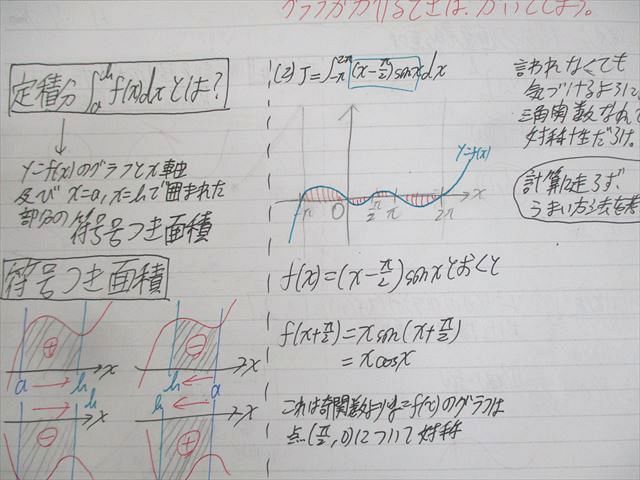 グラフがかけるときは、かいてしまう。
定積分∫_a^b f(x)dxとは？
↓
y=f(x)のグラフとx軸
及びx=a, x=bで囲まれた
部分の符号つき面積
符号つき面積
⊕ x
a → b
⊖ x
b ← a
→ b
⊖ x
b ←
⊕ x
(2) J=∫_{-π}^{2π}(x-π/2)sinxdx
y=f(x)
-π O π/2 π 2π x
f(x)=(x-π/2)sinxとおくと
f(x+π/2)=xsin(x+π/2)
=xcosx
これは奇関数よりy=f(x)のグラフは
点(π/2,0)について対称
言われなくても
気づけるように
三角関数なんて
対称性だらけ。
計算に走らず、
うまい方法を